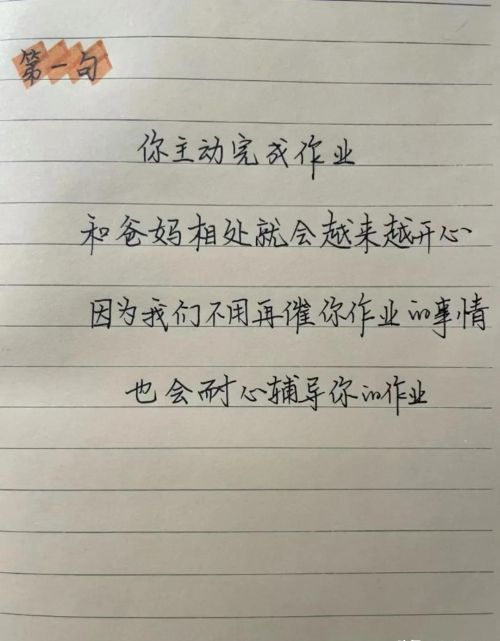 第一句
你主动完成作业
和爸妈相处就会越来越开心
因为我们不用再催你作业的事情
也会耐心辅导你的作业